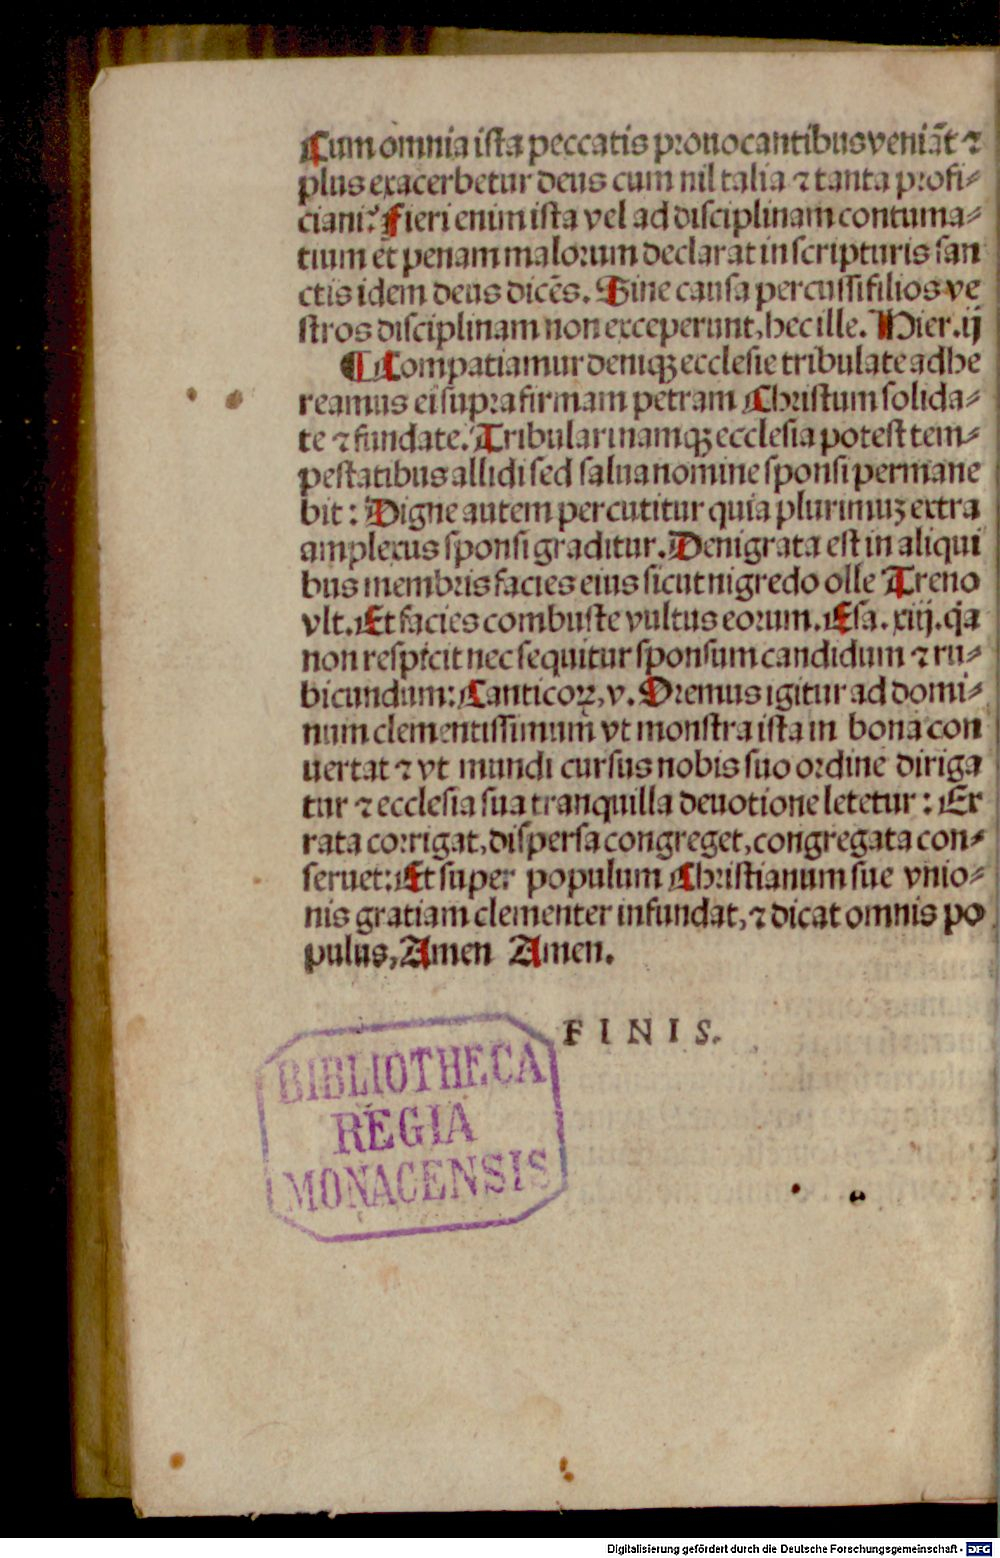 Cum omnia ista peccatis prouocantibus veniāt ⁊
plus exacerbetur deus cum nil talia ⁊ tanta profi⸗
cian⁊? Fieri enim ista vel ad disciplinam contuma⸗
tium et penam malorum declarat in scripturis san
ctis idem deus dicēs. Sine causa percussi filios ve
stros disciplinam non exceperunt, hec ille. Hier. ij
¶ Compatiamur deniqꝫ ecclesie tribulate adhe
reamus ei supra firmam petram Christum solida⸗
te ⁊ fundate. Tribulari namqꝫ ecclesia potest tem⸗
pestatibus allidi sed salua nomine sponsi permane
bit: Digne autem percutitur quia plurimuꝫ extra
amplexus sponsi graditur. Denigrata est in aliqui
bus membris facies eius sicut nigredo olle Treno
vlt. Et facies combuste vultus eorum. Esa. xiij. q̄a
non respicit nec sequitur sponsum candidum ⁊ ru⸗
bicundum: Canticoꝝ, v. Oremus igitur ad domi⸗
num clementissimum vt monstra ista in bona con
uertat ⁊ vt mundi cursus nobis suo ordine diriga
tur ⁊ ecclesia sua tranquilla deuotione letetur: Er
rata corrigat, dispersa congreget, congregata con⸗
seruet: Et super populum Christianum sue vnio⸗
nis gratiam clementer infundat, ⁊ dicat omnis po
pulus, Amen Amen.
FINIS.
BIBLIOTHECA
REGIA
MONACENSIS
Digitalisierung gefördert durch die Deutsche Forschungsgemeinschaft - DFG